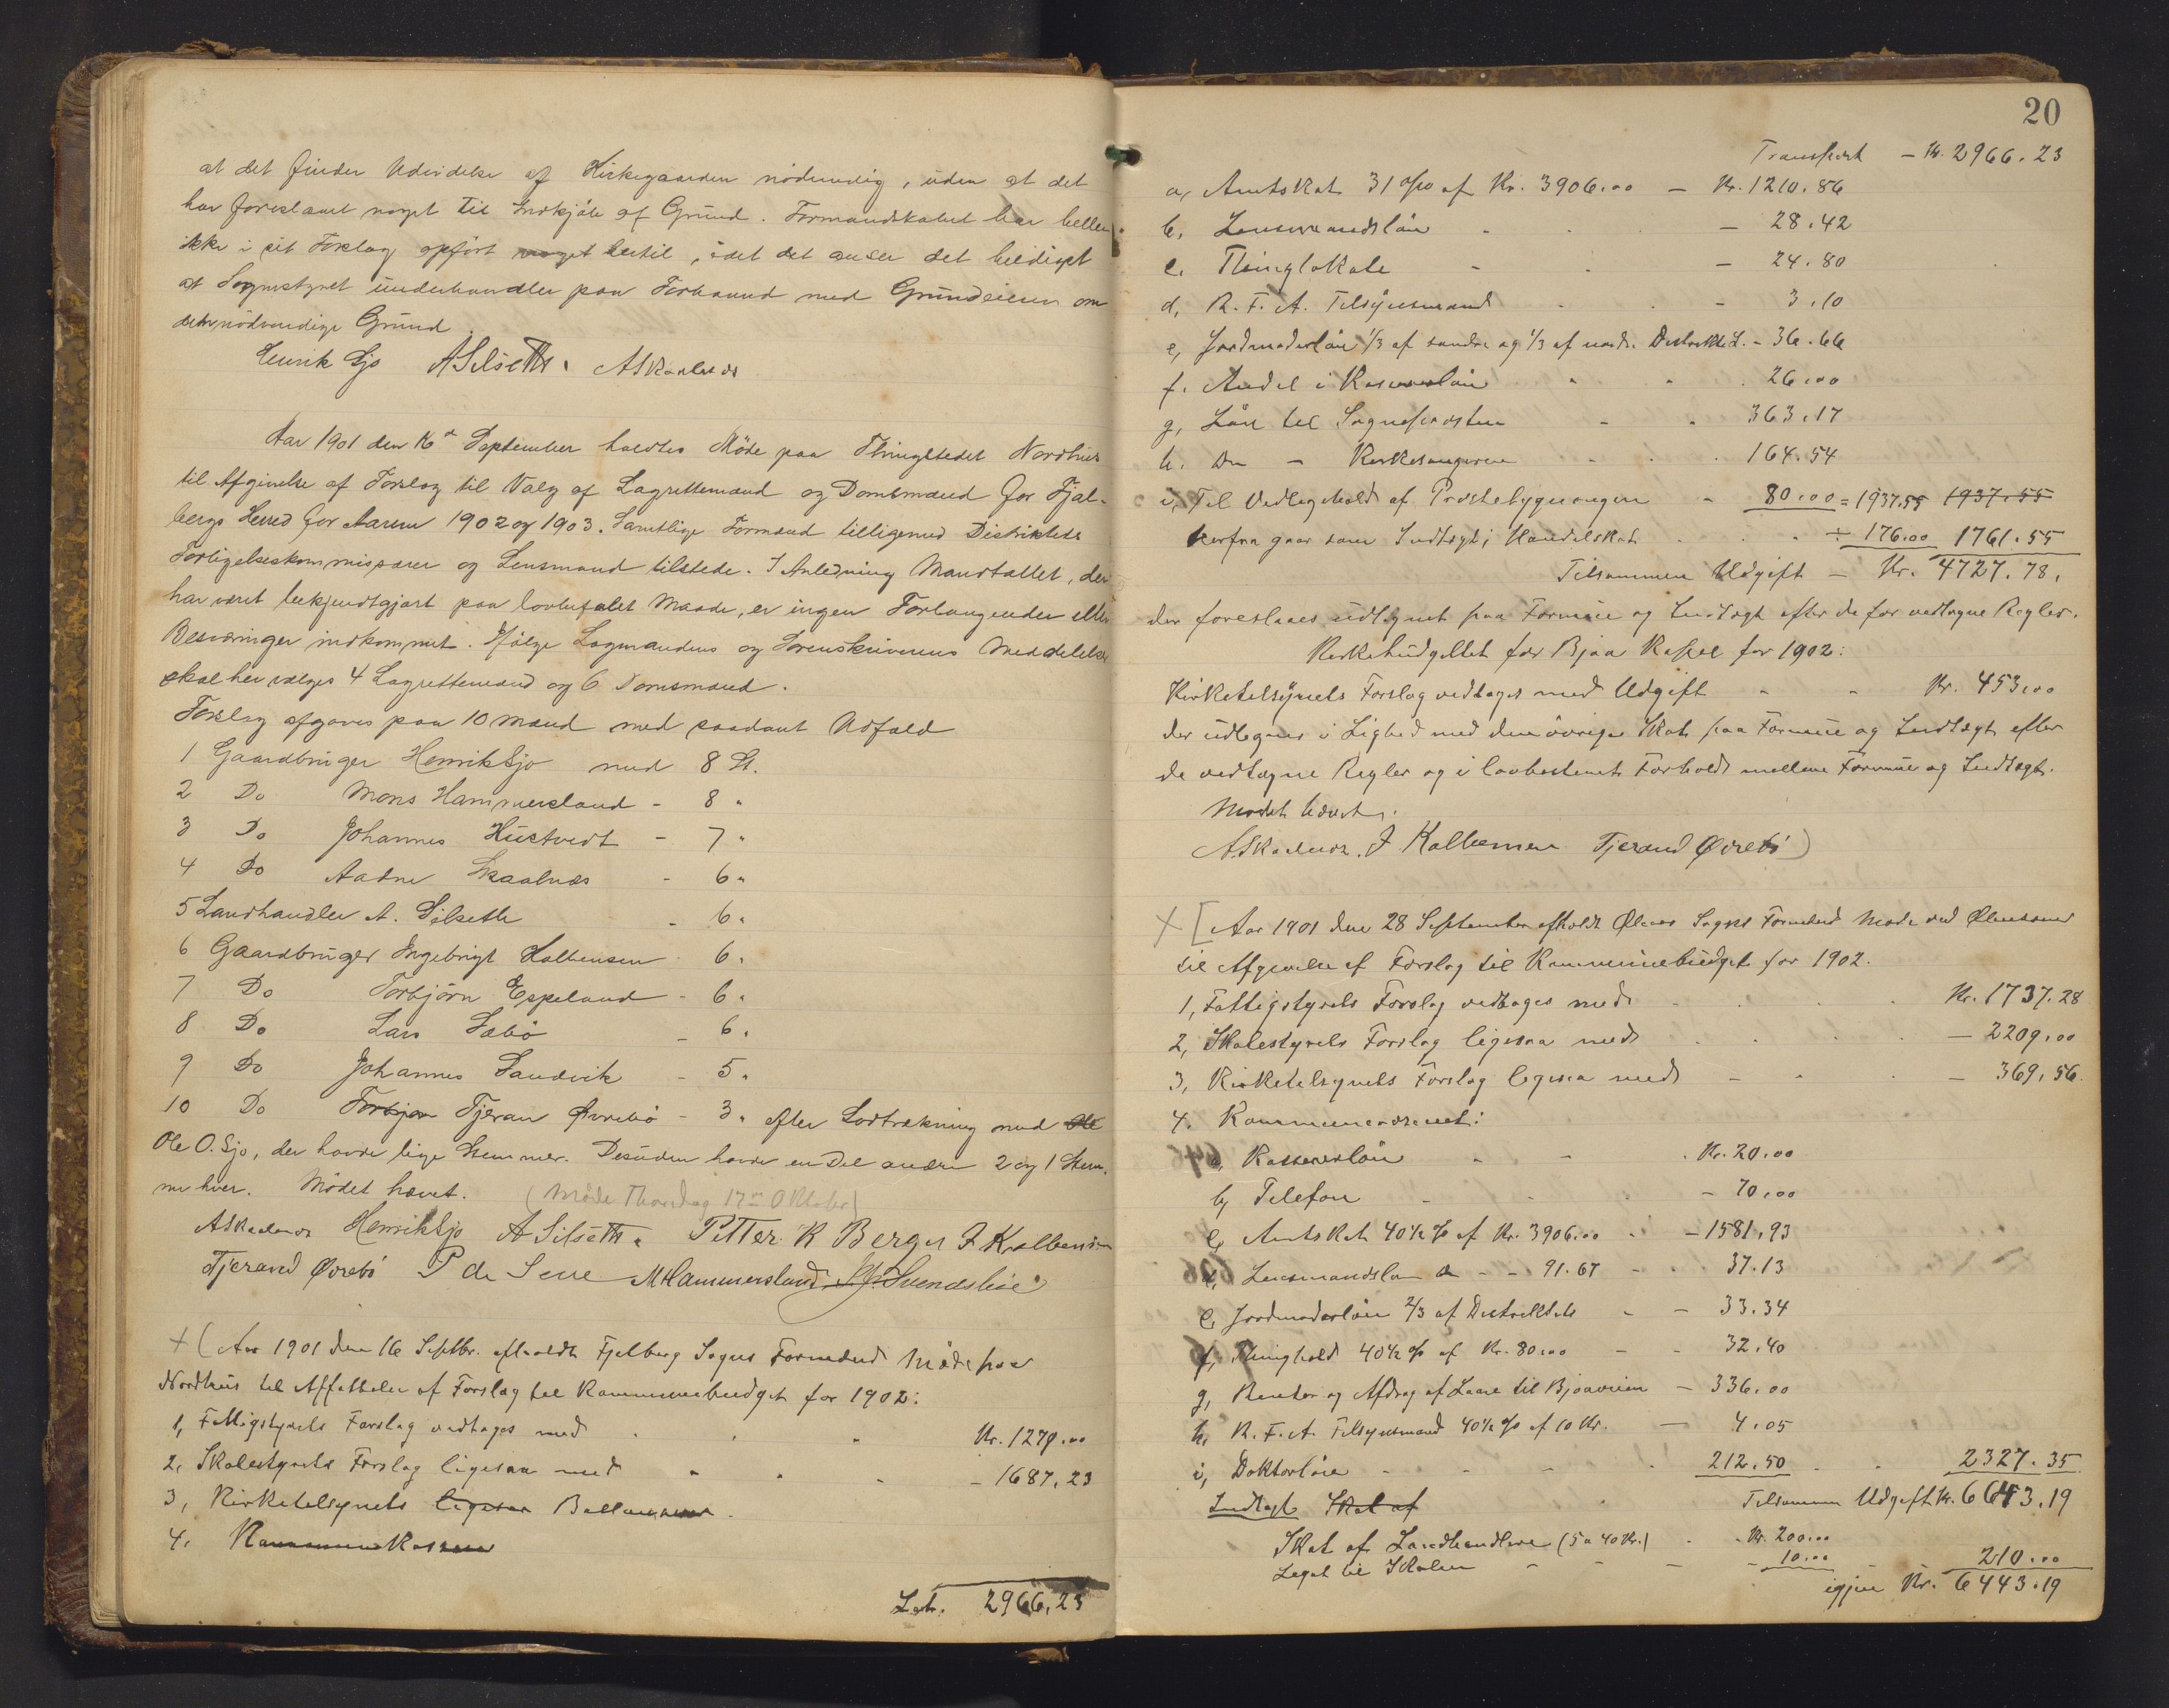 at det finder Udvidelse af Kirkegaarden nödvendig, uden at det
har foreslaaet noget til Indkjöb af Grund. Formandskabet har heller
ikke i sit Forslag opfört noget hertil, idet det anser det heldigst
at Sognestyret underhandler paa Forhaand med Grundeieren om
den nödvendige Grund
Henrik Sjo ASilseth. ASkaalnes
Aar 1901 den 16de September holdtes Möde paa Thingstedet Nordhus
til Afgivelse af Forslag til Valg af Lagrettemænd og Domsmænd for Fjel-
bergs Herred for Aarene 1902 og 1903. Samtlige Formænd tilligemed Distriktets
Forligelseskommissærer og Lensmand tilstede. I Anledning Mandtallet, der
har været bekjendtgjort paa lovbefalet Maade, er ingen Forlangender eller
Besværinger indkommet. Ifölge Lagmandens og Sorenskriverens Meddelelse
skal her vælges 4 Lagrettemænd og 6 Domsmænd.
Forslag afgaves paa 10 Mænd med saadant Udfald
1 Gaardbruger Henrik Sjo med 8 St.
2 Do Mons Hammersland - 8 "
3 Do Johannes Hustvedt - 7 "
4 Do Aadne Skaalnes - 6 "
5 Landhandler A. Silseth - 6 "
6 Gaardbruger Ingebrigt Kalbensen - 6 "
7 Do Torbjörn Eppeland - 6 "
8 Do Lars Sæbö - 6 "
9 Do Johannes Sandvik - 5 "
10 Do Torbjørn Tjeran Øvrebö - 3 " efter Lodtrækning med Ole
Ole O. Sjo, der havde lige Stemmer. Desuden havde en Del andre 2 og 1 Stem-
me hver. Mödet hævet. (Möde Thorsdag 17de Oktober)
ASkaalnes Henrik Sjo A Silseth. Petter K Berge I Kalbensen
Tjerand Øvrebö P de Seue MHammersland Svendsböe
+ (Aar 1901 den 16 Septbr. afholdt Fjelberg Sogns Formænd Möde paa
Nordhus til Affattelse af Forslag til Kommunebudget for 1902:
1, Fattigstyrets Forslag vedtages med Kr. 1279.00
2, Skolestyrets Forslag ligesaa med - 1687,23
3, Kirketilsynets ligesaa Ballancerer.
4. Kommunekassen
Lat. 2966,23
20
Transport - Kr. 2966.23
a, Amtskat 31 o/oo af Kr. 3906.00 - Kr. 1210.86
b, Lensmandslön - 28.42
c. Thinglokale - 24.80
d, R. F. A. Tilsynsmand - 3.10
e, Jordmoderlön 1/3 af søndre og 1/3 af nordr. Distrikts L. - 36.66
f. Andel i Kassererlön 26.00
g, Lön til Sognepræsten 363.17
h. Do - Kirkesangeren 164.54
i, Til Vedligehold af Præstebygningen 80.00 = 1937.55 1937.55
herfra gaar som Indtægt; Handelskat ÷ 176.00 1761.55
Tilsammen Udgift - Kr. 4727.78.
der foreslaaes udlignet paa Formue og Indtægt efter de før vedtagne Regler.
Kirkebudgettet for Bjoa Kapel for 1902:
Kirketilsynets Forslag vedtages med Udgift Kr. 453.00
der udlignes i Lighed med den øvrige Skat paa Formue og Indtægt efter
de vedtagne Regler og i lovbestemt Forhold mellem Formue og Indtægt.
Mødet hævet.
ASkaalnes. I Kalbensen Tjerand Øvrebö)
+ [Aar 1901 den 28 September afholdt Ølens Sogns Formænd Møde ved Ølensøen
til Afgivelse af Forslag til Kommunebudget for 1902.
1, Fattigstyrets Forslag vedtages med Kr. 1737.28
2, Skolestyrets Forslag ligesaa med - 2209.00
3, Kirketilsynets Forslag ligesaa med - 369,56
4. Kommunevæsenet:
a, Kassererlön Kr. 20.00
b, Telefon - 70.00
c, Amtskat 40½ % af Kr. 3906.00 - 1581.93
d, Lensmandslön do - - 91.67 - 37.13
e, Jordmoderlön 2/3 af Distriktets - 33.34
f, Thinghold 40½ % af Kr. 80.00 - 32.40
g, Renter og Afdrag af Laane til Bjoaveien - 336.00
h, R. F. A. Tilsynsmand 40½ % af 10 Kr. - 4.05
i, Doktorlön 212.50 2327.35
Indtægt Skat af Tilsammen Udgift Kr. 6643.19
Skat af Landhandlere (5 a 40 Kr.) - Kr. 200.00
Legat til Skolen - 10.00 210.00
igjen Kr. 6443.19